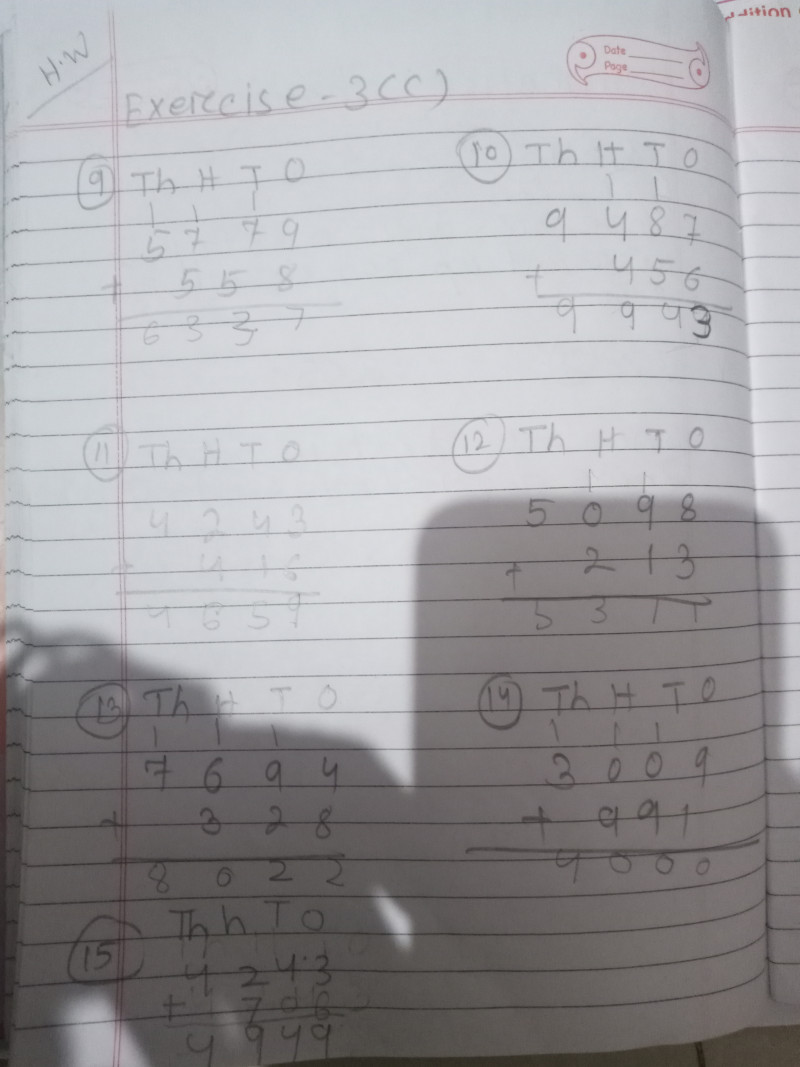 ddition
H.W
Date
Page
Exercise - 3(C)
9 Th H T O
1 1 1
5 7 7 9
+ 5 5 8
6 3 3 7
10 Th H T O
1 1
9 4 8 7
+ 4 5 6
9 9 4 3
11 Th H T O
4 2 4 3
+ 4 1 6
4 6 5 9
12 Th H T O
1 1
5 0 9 8
+ 2 1 3
5 3 1 1
13 Th H T O
1 1 1
7 6 9 4
+ 3 2 8
8 0 2 2
14 Th H T O
1 1 1
3 0 0 9
+ 9 9 1
4 0 0 0
15 Th h T O
4 2 4 3
+ 7 0 6
4 9 4 9